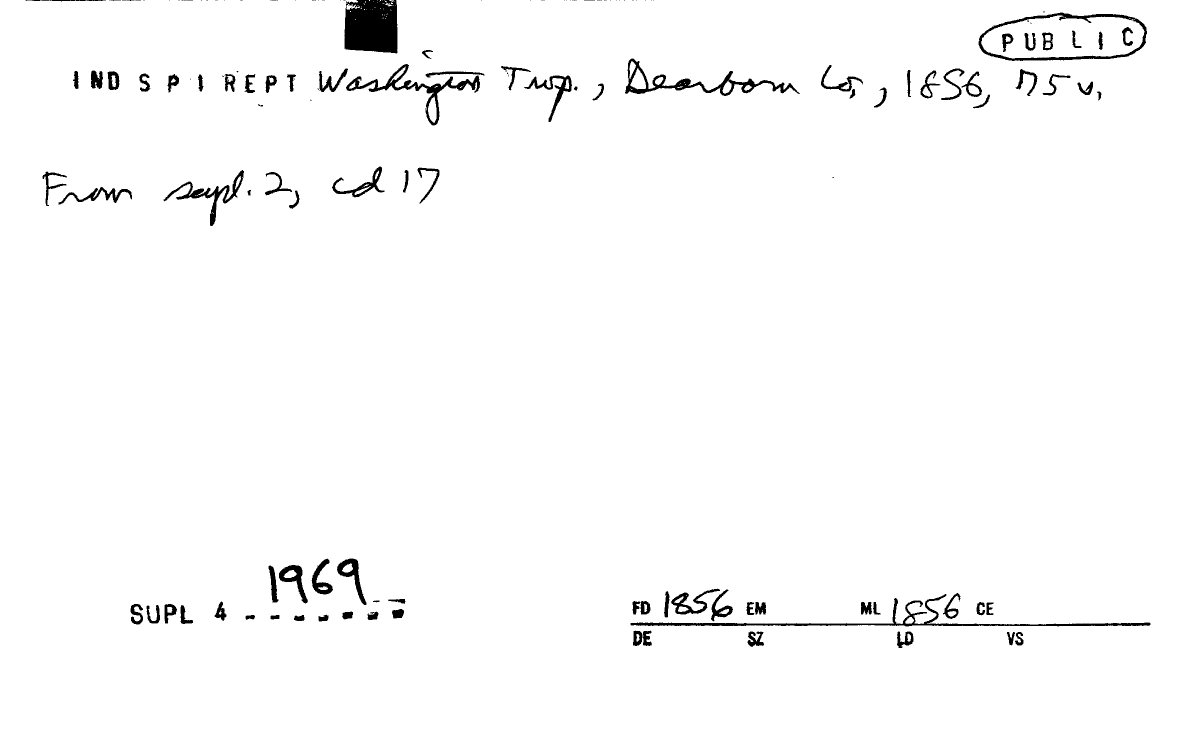 PUBLIC
IND SPI REPT Washington Twp., Dearborn Co., 1856, 75 v.
From supl. 2, cd 17
1969
SUPL 4
FD 1856 EM ML 1856 CE
DE SZ LD VS